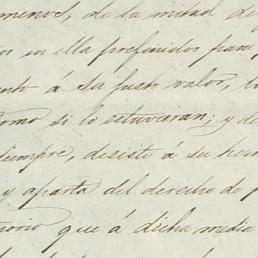 menos, de la mitad de
os en ella prefinidos para
nto á su justo valor, lo
como si lo estuvieran; y de
siempre, desiste á su her
y aparta del derecho de p
torio que á dicha media